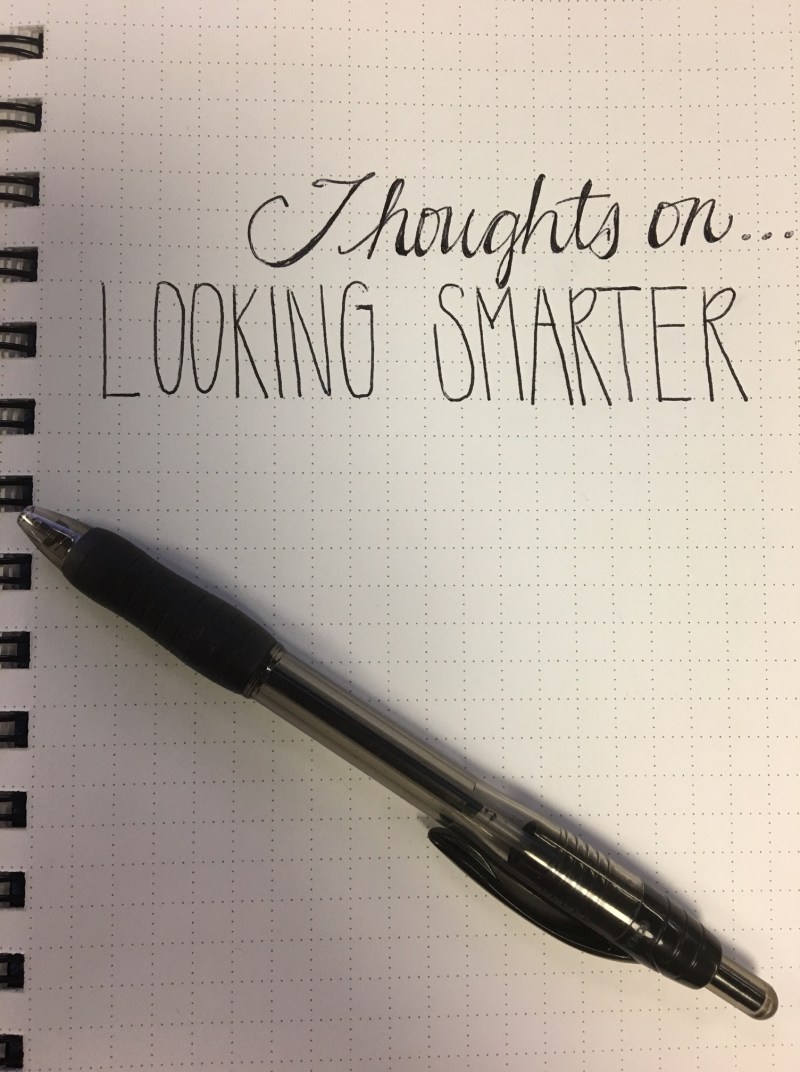 Thoughts on...
LOOKING SMARTER